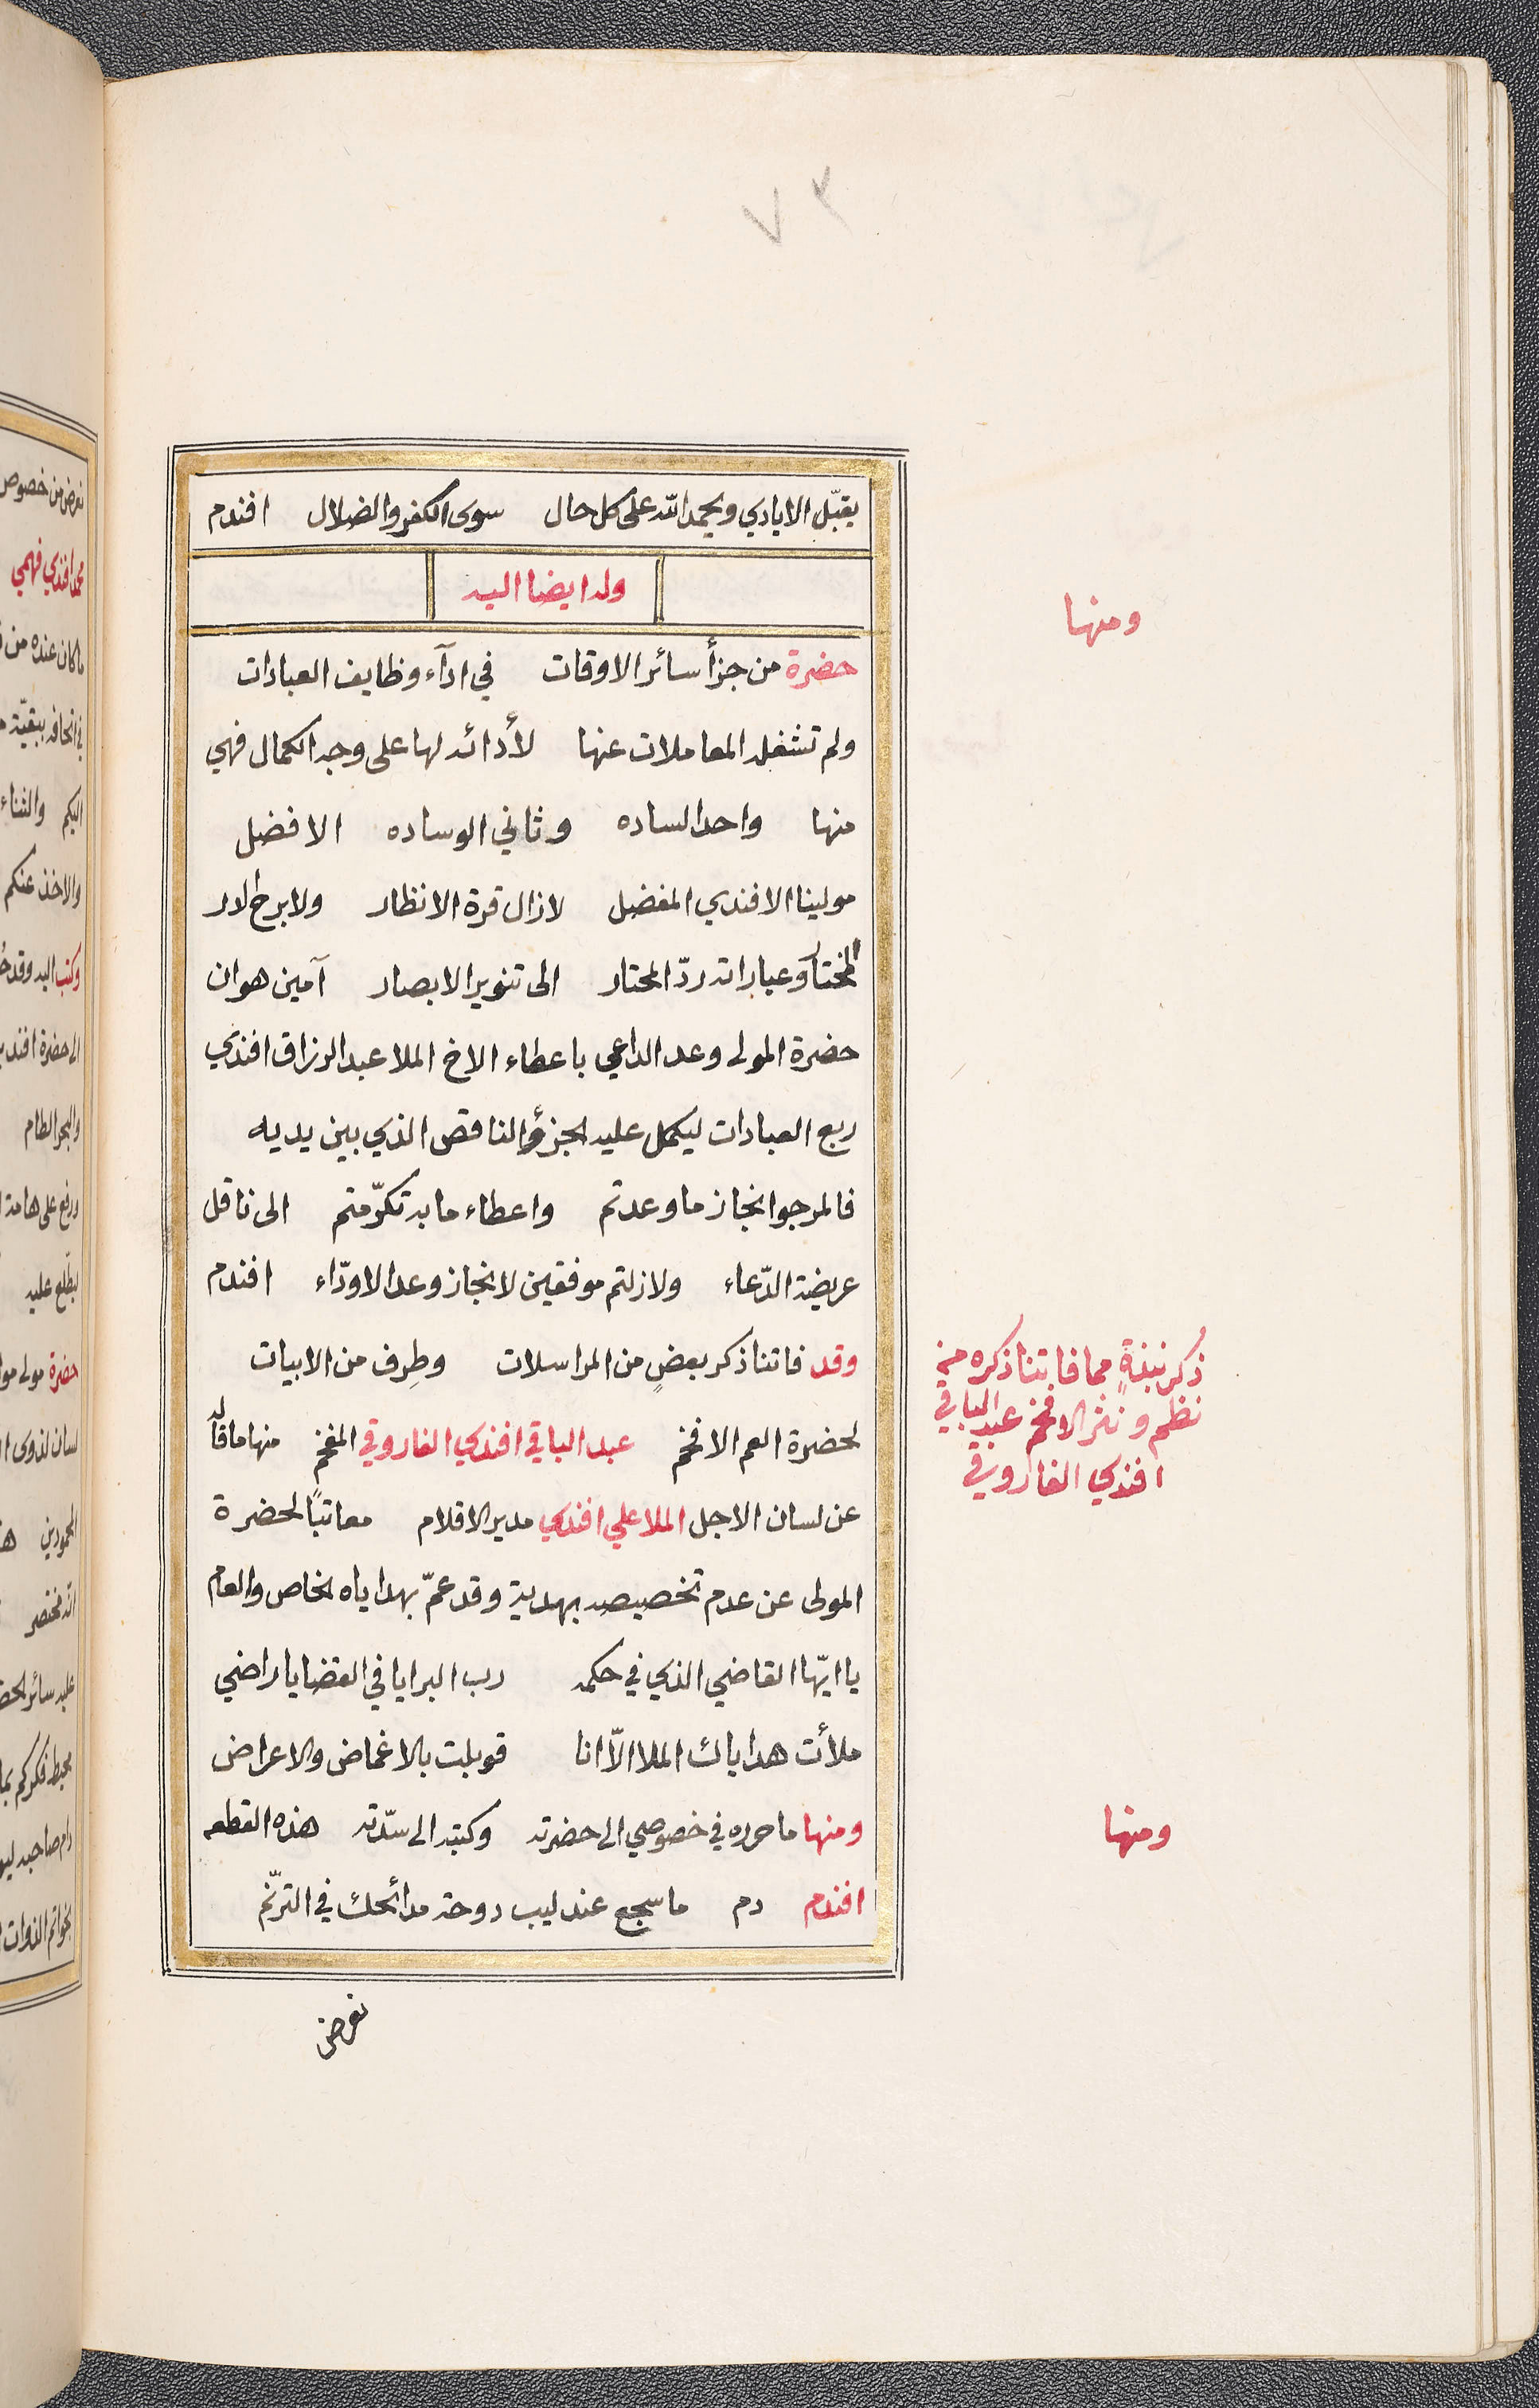 ٣٧
يقبّل الايادي ويحمد الله على كل حال سوى الكفر والضلال افندم
وله ايضا اليه
ومنها
حضرة من جزأ سائر الاوقات في ادآء وظايف العبادات
ولم تشغله المعاملات عنها لأدائه لها على وجه الكمال فهي
منها واحد الساده وثاني الوساده الافضل
مولينا الافندي المفضل لازال قرة الانظار ولا برح الدر
المختار وعباراته ردّ المحتار الى تنوير الابصار آمين هو ان
حضرة المولى وعد الداعي باعطاء الاخ الملا عبد الرزاق افندي
ربع العبادات ليكمل عليه الجزؤ الناقص الذي بين يديه
فالمرجو انجاز ما وعدتم واعطاء ما به تكرّمتم الى ناقل
عريضة الدّعاء ولازلتم موفقين لانجاز وعد الاودّاء افندم
وقد فاتنا ذكر بعضٍ من المراسلات وطِرف من الابيات
ذكر نبذةٍ مما فاتنا ذكره من
نظم ونثر الافخم عبد الباقي
افندي الفاروقي
لحضرة العم الافخم عبد الباقي افندي الفاروقي المفخم منها ما قاله
عن لسان الاجل الملا علي افندي مدير الاقلام معاتبًا لحضرة
المولى عن عدم تخصيصه بهدية وقد عمّ بهداياه الخاص والعام
يا ايّها القاضي الذي في حكمه رب البرايا في القضايا راضي
ملأت هداياك الملا الاّ انا قوبلت بالاغماض والاعراض
ومنها ما حرره في خصوصي الى حضرته وكتبه الى سدّته هذه القطعه
ومنها
افندم دم ما سجع عندليب دوحة مدائحك في الترنّم
نعرض